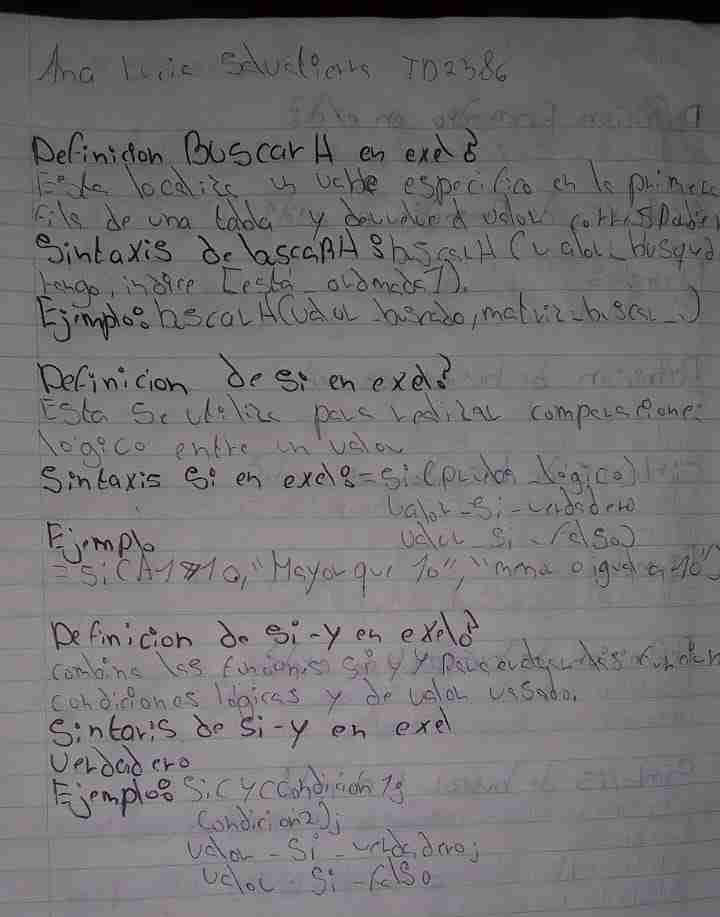 Ana Lucia Salvatierra TD2386
Definicion BUSCarH en exel?
Esta localiza un valor especifico en la primera
fila de una tabla y devuelve el valor
Sintaxis de bascaRH: bascarH (valor_busqud
rango, indice [esta_ordenada]).
Ejmplo: bscarH(valor_busado, matriz_buscar_)
Definicion de si en exel?
Esta Se utiliza para realizar comparacione
lógico entre un valor
Sintaxis Si en exel: = Si (prueba_lógico)
valor_Si_verdadero
valor_Si_falso)
Ejemplo
= Si(A1>10, "Mayor que 10", "menor o igual a 10")
Definicion de Si-y en exel?
combina las funciones Si y Y para
condiciones lógicas y de valor usado.
Sintaxis de Si-y en exel
Verdadero
Ejemplo: Si(Y(Condición 1;
Condicion2);
valor-Si-verdadero;
valor-Si-falso